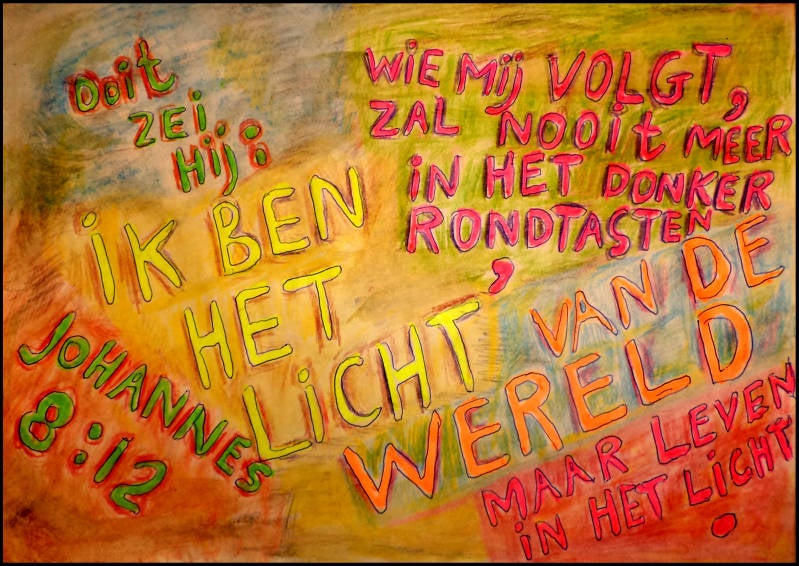 Ooit
ZEI
Hij:
iK BEN
HET
LiCHT'
VAN DE
WERELD
WiE Mij VOLGT,
ZAL NOOit MEER
iN HET DONKER
RONDTASTEN
,
MAAR LEVEN
iN HET LiCHT.
JOHANNES
8:12